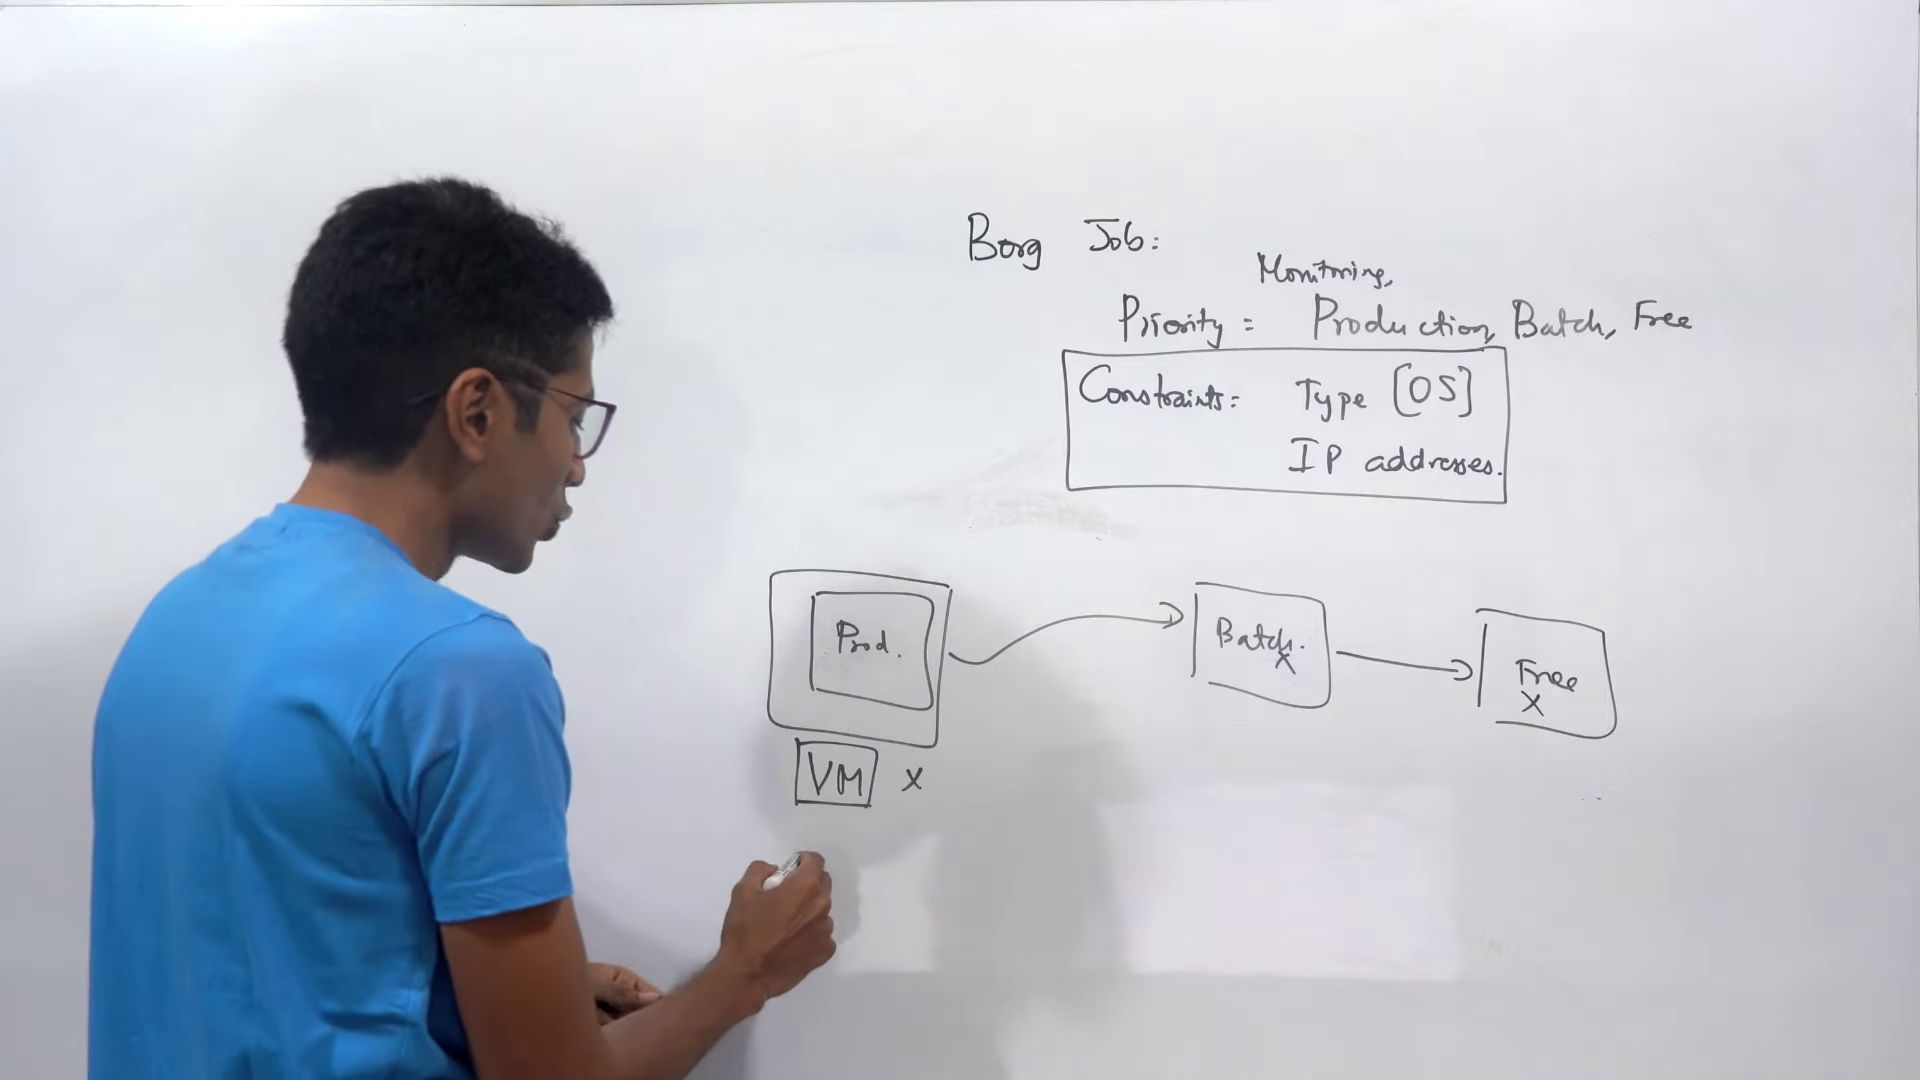 Borg Job:
Monitoring,
Priority = Production, Batch, Free
Constraints: Type [OS]
IP addresses.
Prod.
Batch.
X
Free
X
VM X